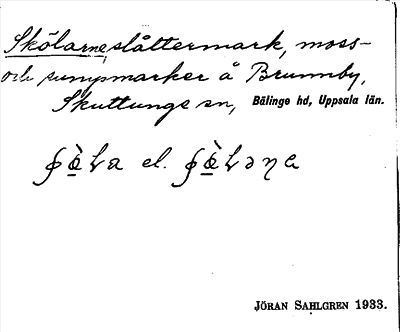 Skölarneslåttermark, moss-
och sumpmarker å Brunnby,
Skuttunge sn, Bälinge hd, Uppsala län.
el.
JÖRAN SAHLGREN 1933.